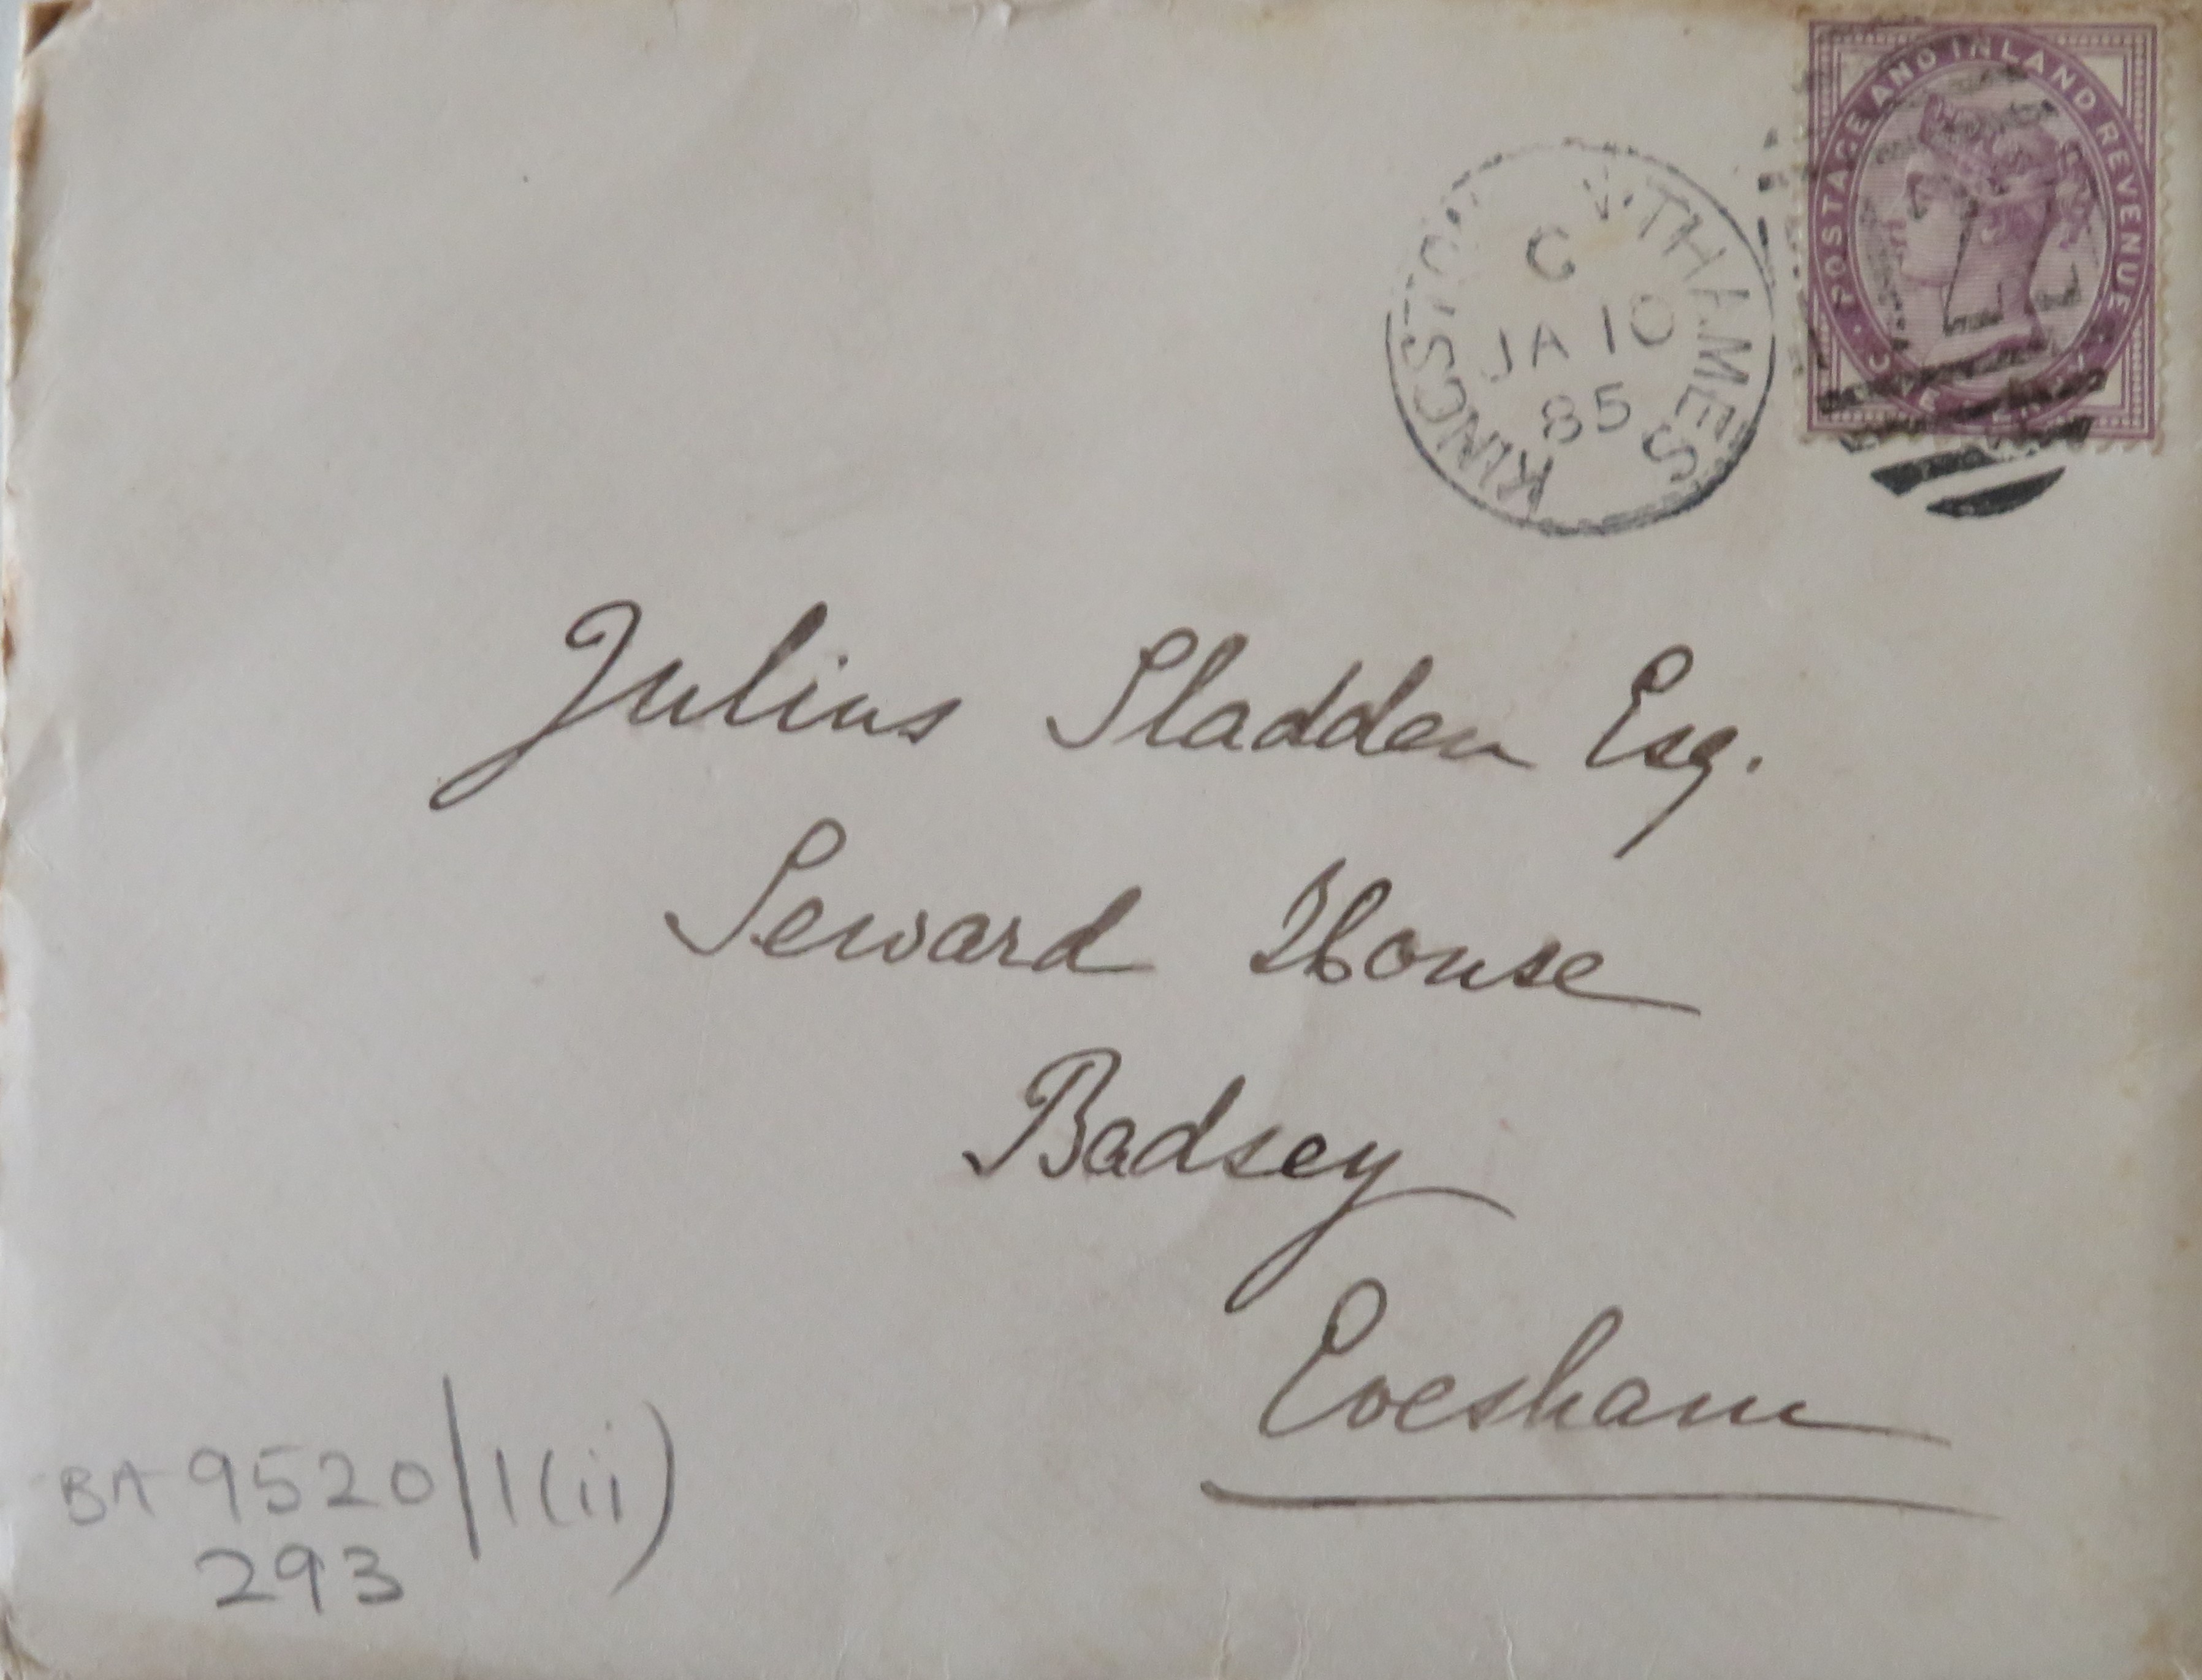 POSTAGE AND INLAND REVENUE
KINGSTON THAMES
C
JA 10
85
Julius Sladden Esq.
Seward House
Badsey
Evesham
BA 9520/1(ii)
293